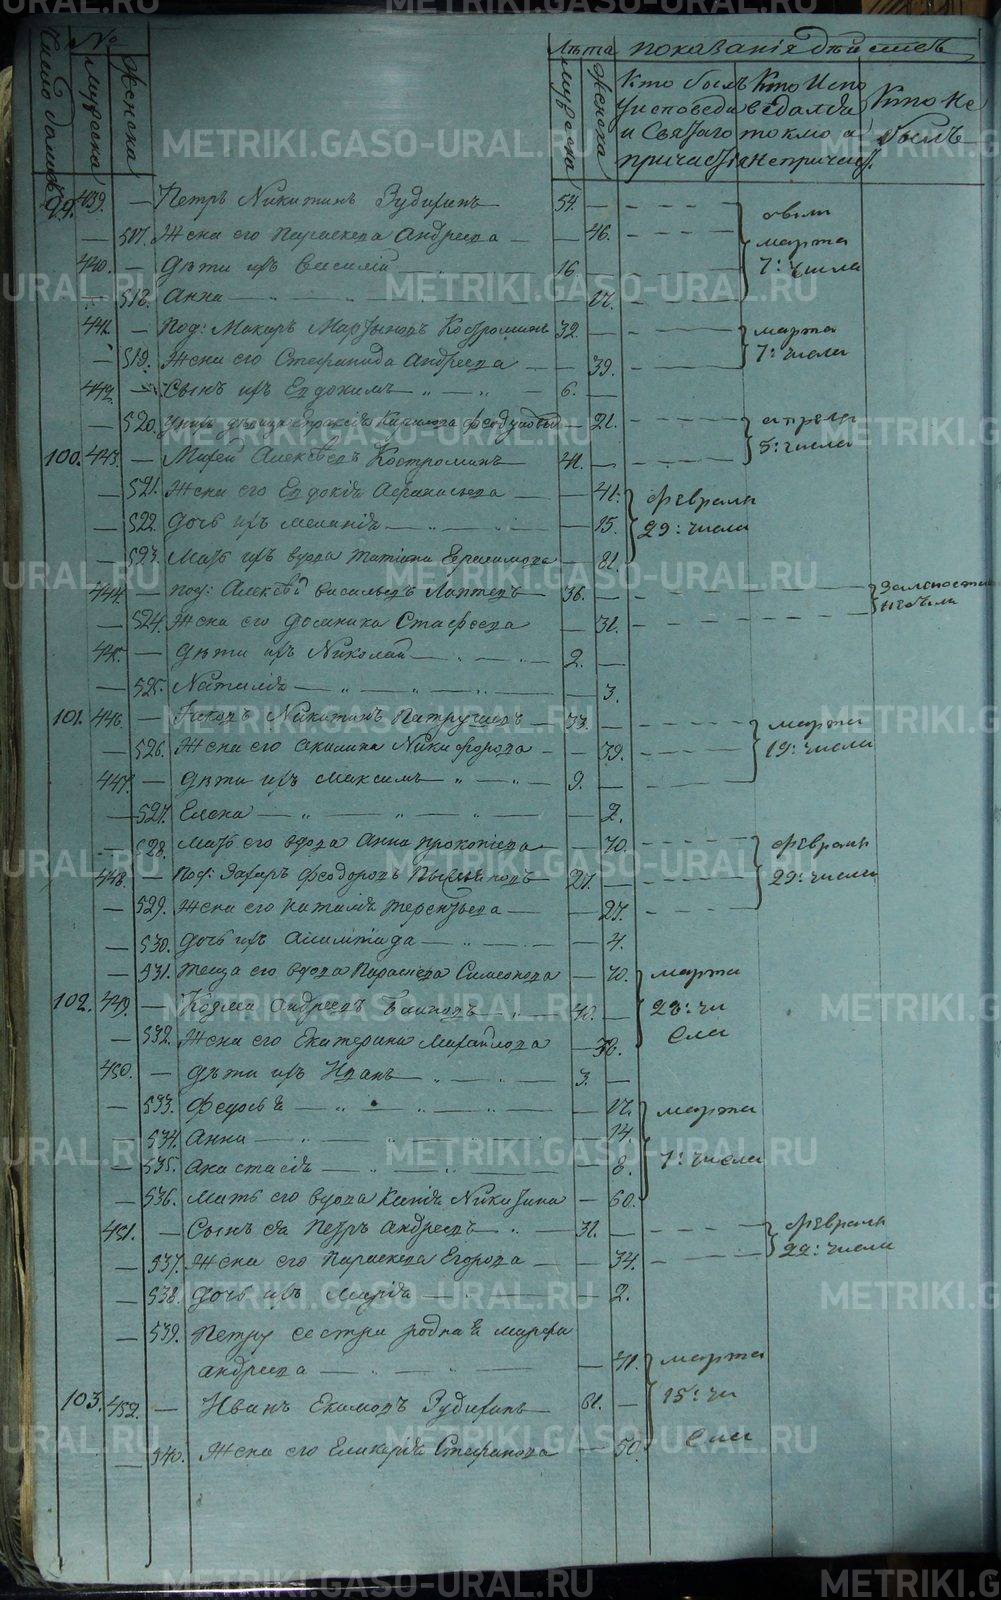 Число домовъ № мужеска женска Лѣта мужеска женска показанія дѣйствъ
Кто былъ у исповеди и Святаго причастія
Кто Испо ведался токмо а не причас.
Кто не былъ
99. 439. — Петръ Никитинъ Зудихинъ 54. —
— 517. Жена его Параскева Андреева — 46. овыи марта 7: числа
440. — дѣти ихъ Василій 16. —
— 518. Анна — 12.
441. — Под: Макаръ Мартыновъ Костроминъ 32. — марта 7: числа
— 519. Жена его Стефанида Андреева — 39.
442. — Сынъ ихъ Евдокимъ 6. —
— 520. — 21. апреля 5: числа
100. 443. — Матфей Алексѣевъ Костроминъ 41. —
— 521. Жена его Евдокія Афанасьева — 41. февраля 29: числа
— 522. дочь ихъ Меланія — 15.
— 523. Мать ихъ вдова Татіана Герасимова — 81.
444. — Под: Алексѣй Васильевъ Лаптевъ 36. —
— 524. Жена его Домника Стафеева — 31. небыли
445. — дѣти ихъ Николай 2. —
— 525. Наталія — 3.
101. 446. — Никитинъ Патрушевъ 33. — марта 19: числа
— 526. Жена его Акилина Никифорова — 39.
447. — дѣти ихъ Максимъ 9. —
— 527. Елена — 2.
— 528. Мать его вдова Анна Прокопіева — 70. февраля 29: числа
448. — Под: Захаръ Феодоровъ 27. —
— 529. Жена его Наталія Терентьева — 27.
— 530. дочь ихъ — 4.
— 531. теща его вдова Параскева Симеонова — 70. марта 23: числа
102. 449. — Козма Андреевъ 40. —
— 532. Жена его Екатерина Михайлова — 38.
450. — дѣти ихъ Иванъ 3. —
— 533. Федосья — 17. марта 7: числа
— 534. Анна — 14.
— 535. Анастасія — 8.
— 536. мать его вдова Ксенія Никитина — 60.
451. — Сынъ ея Петръ Андреевъ 31. — февраля 22: числа
— 537. Жена его Параскева Егорова — 34.
— 538. дочь ихъ Марія — 2.
539. Петру сестра родная Марфа
Андреева — 41. марта 15: числа
103. 452. — Иванъ Екимовъ Зудихинъ 61. —
— 540. Жена его Гликерія Стефанова — 50.
METRIKI.GASO-URAL.RU